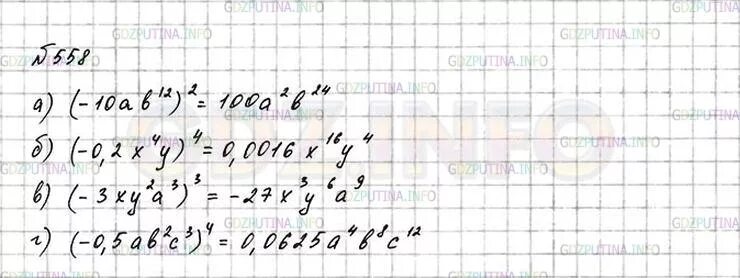 GDZPUTINA.INFO GDZPUTINA.INFO GDZPUTINA.INFO
№558
а) (-10ab¹²)² = 100a²b²⁴
б) (-0,2x⁴y)⁴ = 0,0016x¹⁶y⁴
в) (-3xy²a³)³ = -27x³y⁶a⁹
г) (-0,5ab²c³)⁴ = 0,0625a⁴b⁸c¹²
GDZ.INFO